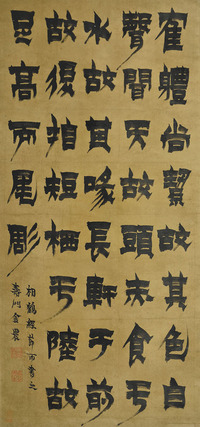 寉體尚絜故其色白
聲聞天故頭赤食亏
水故其喙長軒于前
故後指短栖亏陸故
足高而尾彫
相鶴經節而書之
壽門金農